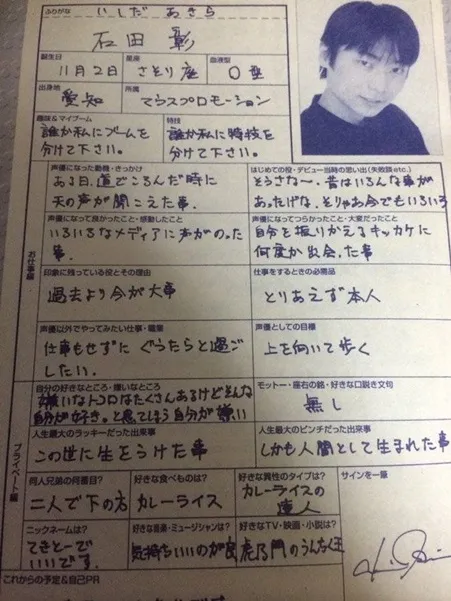 ふりがな いしだ あきら
石田 彰
誕生日 星座 血液型
11月2日 さそり座 O型
出身地 所属
愛知 てらスプロモーション
趣味&マイブーム 特技
誰か私にブームを 誰か私に特技を
分けて下さい。 分けて下さい。
お仕事編
声優になった動機・きっかけ はじめての役・デビュー当時の思い出(失敗談etc.)
ある日、道でころんだ時に そうさな〜、昔はいろんな事が
天の声が聞こえた事。 あったげな、そりゃあ今でもいろいろ
声優になって良かったこと・感動したこと 声優になってつらかったこと・大変だったこと
いろいろなメディアに声がのった 自分を振りかえるキッカケに
事. 何度か出会った事
印象に残っている役とその理由 仕事をするときの必需品
過去より今が大事 とりあえず本人
声優以外でやってみたい仕事・職業 声優としての目標
仕事もせずに ぐうたらと過ご 上を向いて歩く
したい.
プライベート編
自分の好きなところ・嫌いなところ モットー・座右の銘・好きな口説き文句
嫌いなトコロはたくさんあるけどそんな 無し
自分が好き。と思ってしまう自分が嫌い
人生最大のラッキーだった出来事 人生最大のピンチだった出来事
この世に生をうけた事 しかも人間として生まれた事
何人兄弟の何番目? 好きな食べものは? 好きな異性のタイプは? サインを一筆
二人で下の方 カレーライス カレーライスの
達人
ニックネームは? 好きな音楽・ミュージシャンは? 好きなTV・映画・小説は?
てきとーで 気持ちいいのが良 虎ノ門のうんちく王
いいです.
これからの予定&自己PR